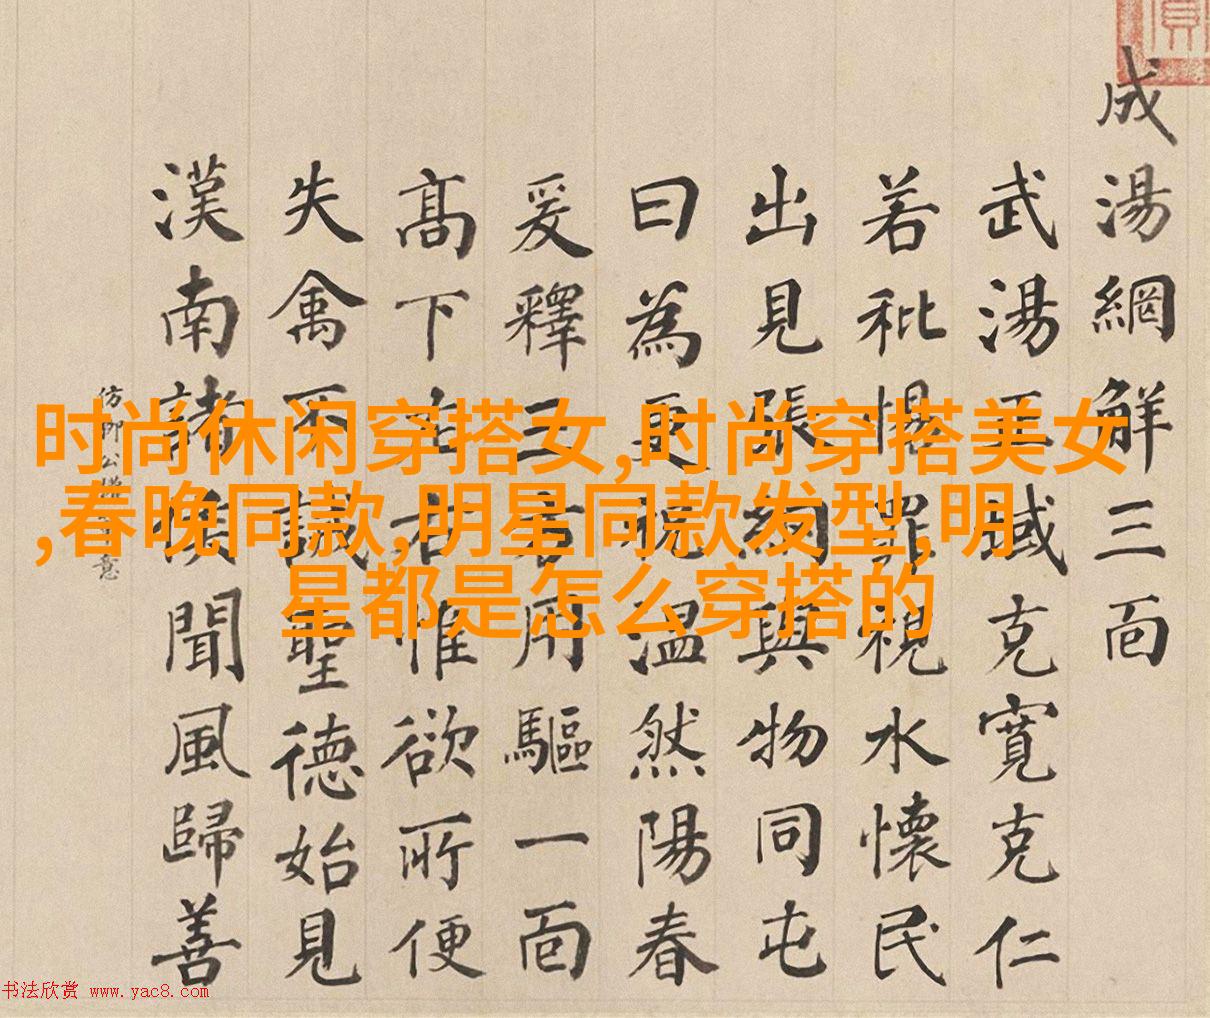 成湯網解三面
武湯王克寬克仁
若秕惕罪視水懷民
出見張網與物同屯
曰為更祝温然陽春
爰釋三者用驅一面
髙下左右惟欲所便
失禽不誡聖德始見
漢南諸侯聞風歸善
仿公意
时尚休闲穿搭女,时尚穿搭美女
,春晚同款,明星同款发型,明
星都是怎么穿搭的
书法欣赏 www.yac8.com